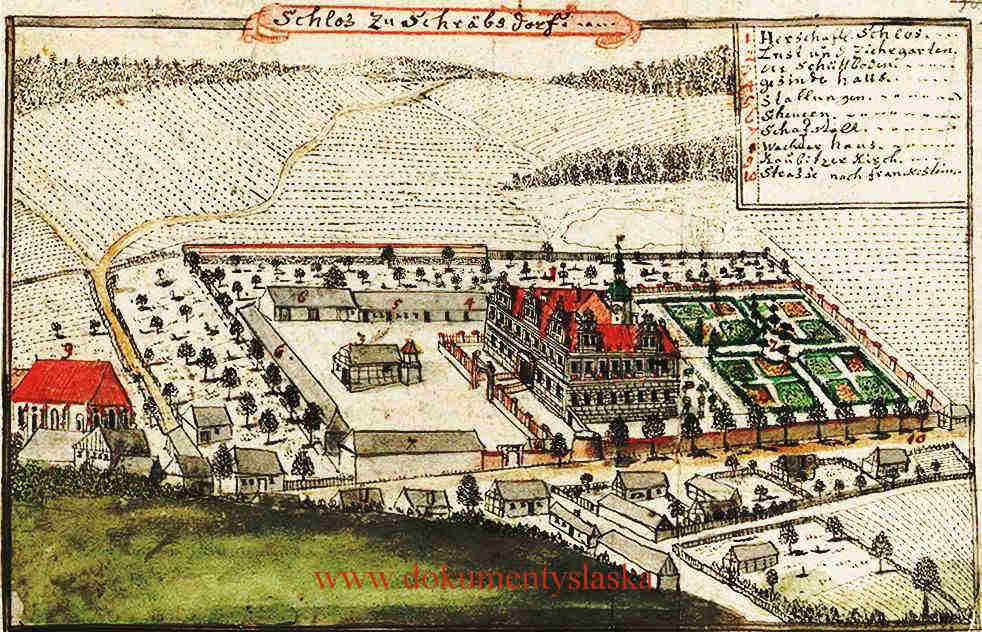 Schlos zu Schräbsdorf.
1 Herschaft. Schlos.
2 Lust und Ziehrgarten.
3 Schüttboden.
4 gesinde haus.
5 Stallungen.
6 Scheuren.
7 Schafstall.
8 Wachter haus.
9 Kaubitzer Kirch.
10 Strasse nach
1
6
5
4
3
6
2
9
7
10
www.dokumentyslaska